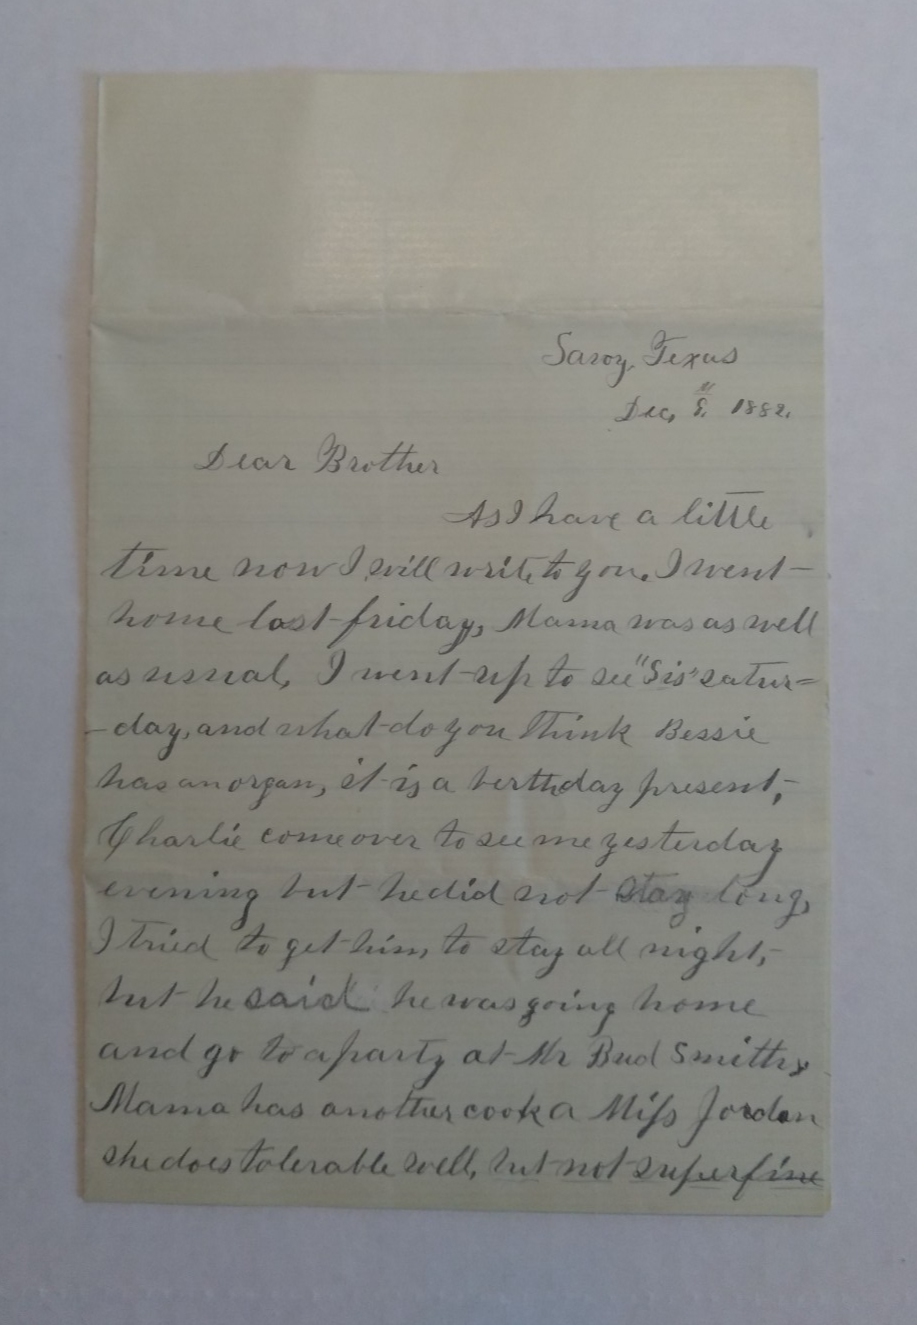 Savoy, Texas
Dec, 8, 1882.
Dear Brother
As I have a little
time now I will write to you. I went
home last friday, Mama was as well
as usual, I went up to see "Sis" satur=
-day, and what do you think Bessie
has an organ, it is a birthday present,
Charlie come over to see me yesterday
evening but he did not stay long,
I tried to get him, to stay all night,
but he said he was going home
and go to a party at Mr Bud Smiths,
Mama has another cook a Miss Jordan
she does tolerable well, but not superfine